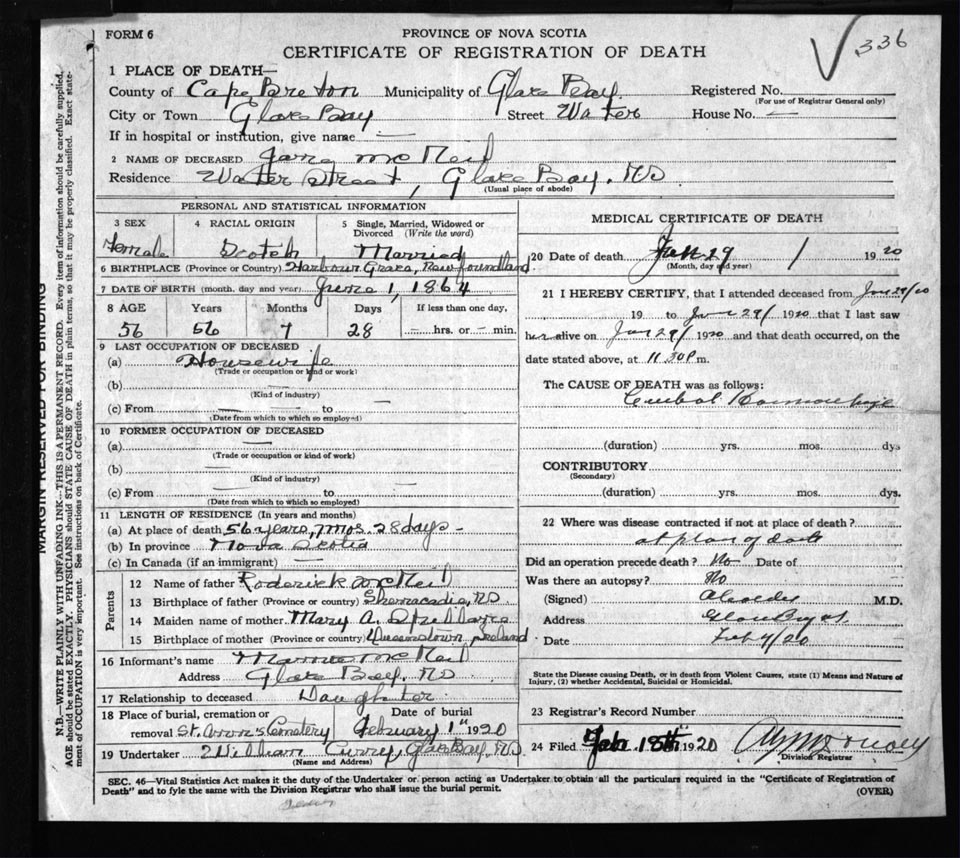 FORM 6
PROVINCE OF NOVA SCOTIA
CERTIFICATE OF REGISTRATION OF DEATH
336
1 PLACE OF DEATH—
County of Cape Breton Municipality of Glace Bay Registered No.
(For use of Registrar General only)
City or Town Glace Bay Street Water House No. —
If in hospital or institution, give name —
2 NAME OF DECEASED Jane McNeil
Residence Water Street, Glace Bay. NS
(Usual place of abode)
PERSONAL AND STATISTICAL INFORMATION
3 SEX 4 RACIAL ORIGIN 5 Single, Married, Widowed or Divorced (Write the word)
Female Scotch Married
6 BIRTHPLACE (Province or Country) Harbour Grace, Newfoundland
7 DATE OF BIRTH (month, day and year) June 1, 1864
8 AGE Years Months Days If less than one day,
56 56 7 28 — hrs. or — min.
9 LAST OCCUPATION OF DECEASED
(a) Housewife
(Trade or occupation or kind or work)
(b)
(Kind of industry)
(c) From — to —
(Date from which to which so employed)
10 FORMER OCCUPATION OF DECEASED
(a) —
(Trade or occupation or kind of work)
(b) —
(Kind of industry)
(c) From — to —
(Date from which to which so employed)
11 LENGTH OF RESIDENCE (In years and months)
(a) At place of death 56 years, 7 mos. 28 days -
(b) In province Nova Scotia
(c) In Canada (if an immigrant) —
Parents
12 Name of father Roderick McNeil
13 Birthplace of father (Province or country) NS.
14 Maiden name of mother Mary A.
15 Birthplace of mother (Province or country) Queenstown, Ireland
16 Informant's name McNeil
Address Glace Bay, NS
17 Relationship to deceased Daughter
18 Place of burial, cremation or Date of burial
removal St. Ann's Cemetery February 1st 1920
19 Undertaker William Curry, Glace Bay, NS.
(Name and Address)
MEDICAL CERTIFICATE OF DEATH
20 Date of death Jan 29 / 1920
(Month, day and year)
21 I HEREBY CERTIFY, that I attended deceased from Jan 29/20
19 to Jan 29/ 1920 that I last saw
her alive on Jan 29/ 1920 and that death occurred, on the
date stated above, at 11.30 P m.
The CAUSE OF DEATH was as follows:
(duration) yrs. mos. dys
CONTRIBUTORY
(Secondary)
(duration) yrs. mos. dys.
22 Where was disease contracted if not at place of death?
at place of death
Did an operation precede death? No Date of
Was there an autopsy? No
(Signed) M.D.
Address Glace Bay
Date Feb 4/20
State the Disease causing Death, or in death from Violent Causes, state (1) Means and Nature of
Injury, (2) whether Accidental, Suicidal or Homicidal.
23 Registrar's Record Number
24 Filed Feb 18th 1920
Division Registrar
SEC. 46—Vital Statistics Act makes it the duty of the Undertaker or person acting as Undertaker to obtain all the particulars required in the "Certificate of Registration of
Death" and to fyle the same with the Division Registrar who shall issue the burial permit.
(OVER)
MARGIN RESERVED FOR BINDING
N.B.—WRITE PLAINLY WITH UNFADING INK—THIS IS A PERMANENT RECORD. Every item of information should be carefully supplied.
AGE should be stated EXACTLY. PHYSICIANS should STATE CAUSE OF DEATH in plain terms, so that it may be properly classified. Exact state-
ment of OCCUPATION is very important. See instructions on back of Certificate.